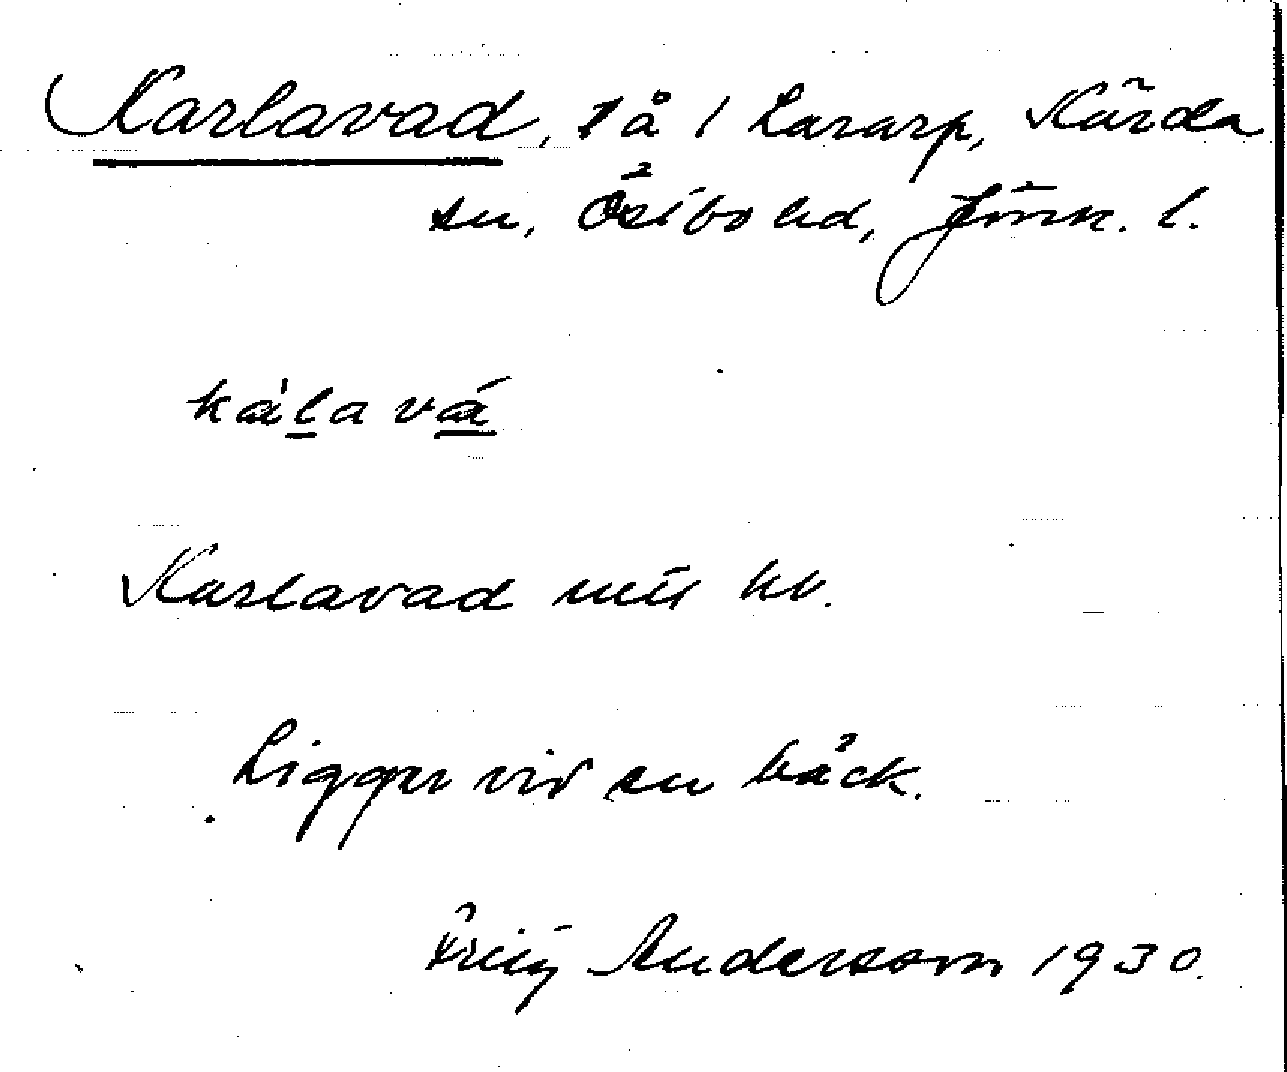 Karlavad, så i Lararp, Kärda
sn, Östbo hd, Jönk. l.
kȧlavá
Karlavad mtl kv.
Ligger vid en bäck.
Fritz Andersson 1930.